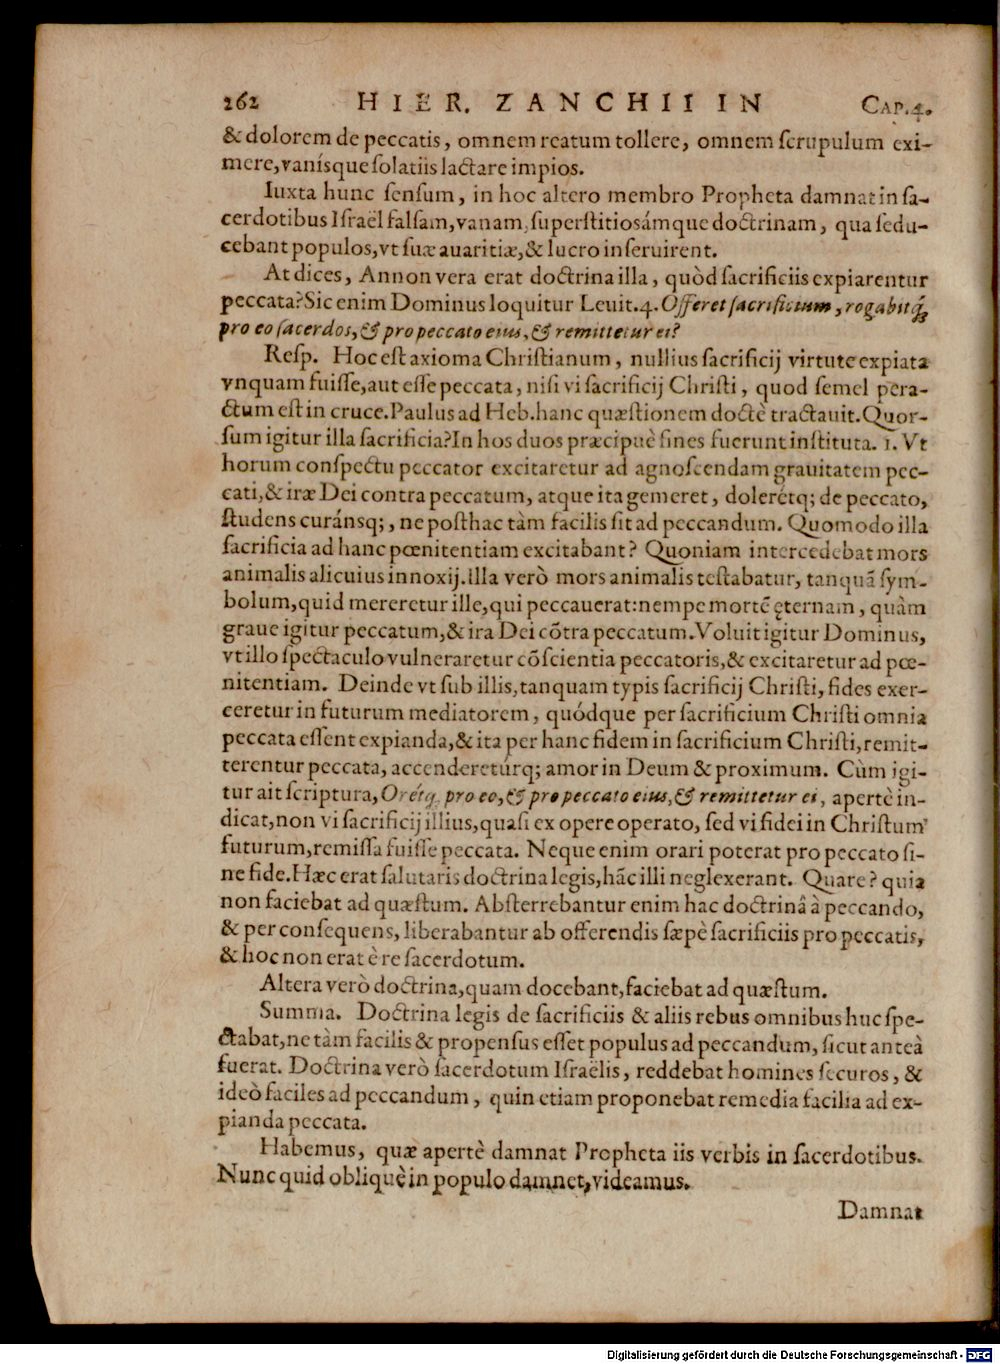 262 HIER. ZANCHII IN CAP. 4.
& dolorem de peccatis, omnem reatum tollere, omnem ſcrupulum exi-
mere, vanísque ſolatiis lactare impios.
Iuxta hunc ſenſum, in hoc altero membro Propheta damnat in ſa-
cerdotibus Iſraël falſam, vanam, ſuperſtitioſámque doctrinam, qua ſedu-
cebant populos, vt ſuæ auaritiæ, & lucro inſeruirent.
At dices, Annon vera erat doctrina illa, quòd ſacrificiis expiarentur
peccata? Sic enim Dominus loquitur Leuit. 4. Offeret ſacrificium, rogabitq́;
pro eo ſacerdos, & pro peccato eius, & remittetur ei?
Reſp. Hoc eſt axioma Chriſtianum, nullius ſacrificij virtute expiata
vnquam fuiſſe, aut eſſe peccata, niſi vi ſacrificij Chriſti, quod ſemel pera-
ctum eſt in cruce. Paulus ad Heb. hanc quæſtionem doctè tractauit. Quor-
ſum igitur illa ſacrificia? In hos duos præcipuè fines fuerunt inſtituta. 1. Vt
horum conſpectu peccator excitaretur ad agnoſcendam grauitatem pec-
cati, & iræ Dei contra peccatum, atque ita gemeret, dolerétq; de peccato,
ſtudens curánsq;, ne poſthac tàm facilis ſit ad peccandum. Quomodo illa
ſacrificia ad hanc pœnitentiam excitabant? Quoniam intercedebat mors
animalis alicuius innoxij. illa verò mors animalis teſtabatur, tanquã ſym-
bolum, quid mereretur ille, qui peccauerat: nempe mortẽ ęternam, quàm
graue igitur peccatum, & ira Dei cõtra peccatum. Voluit igitur Dominus,
vt illo ſpectaculo vulneraretur cõſcientia peccatoris, & excitaretur ad pœ-
nitentiam. Deinde vt ſub illis, tanquam typis ſacrificij Chriſti, fides exer-
ceretur in futurum mediatorem, quódque per ſacrificium Chriſti omnia
peccata eſſent expianda, & ita per hanc fidem in ſacrificium Chriſti, remit-
terentur peccata, accenderetúrq; amor in Deum & proximum. Cùm igi-
tur ait ſcriptura, Orétq; pro eo, & pro peccato eius, & remittetur ei, apertè in-
dicat, non vi ſacrificij illius, quaſi ex opere operato, ſed vi fidei in Chriſtum
futurum, remiſſa fuiſſe peccata. Neque enim orari poterat pro peccato ſi-
ne fide. Hæc erat ſalutaris doctrina legis, hãc illi neglexerant. Quare? quia
non faciebat ad quæſtum. Abſterrebantur enim hac doctrinâ à peccando,
& per conſequens, liberabantur ab offerendis ſæpè ſacrificiis pro peccatis,
& hoc non erat è re ſacerdotum.
Altera verò doctrina, quam docebant, faciebat ad quæſtum.
Summa. Doctrina legis de ſacrificiis & aliis rebus omnibus huc ſpe-
ctabat, ne tàm facilis & propenſus eſſet populus ad peccandum, ſicut anteà
fuerat. Doctrina verò ſacerdotum Iſraëlis, reddebat homines ſecuros, &
ideò faciles ad peccandum, quin etiam proponebat remedia facilia ad ex-
pianda peccata.
Habemus, quæ apertè damnat Propheta iis verbis in ſacerdotibus.
Nunc quid obliquè in populo damnet, videamus.
Damnat
Digitalisierung gefördert durch die Deutsche Forschungsgemeinschaft - DFG